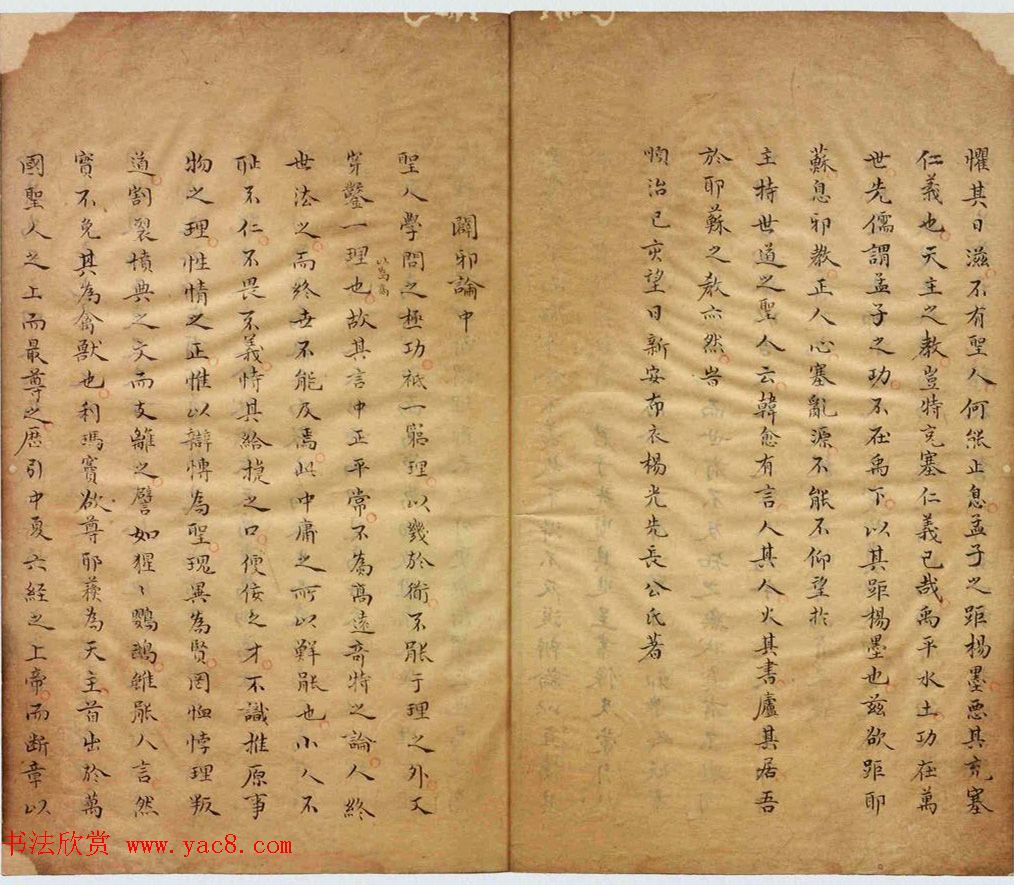 懼其日滋不有聖人何能止息孟子之距楊墨惡其充塞
仁義也天主之教豈特充塞仁義已哉禹平水土功在萬
世先儒謂孟子之功不在禹下以其距楊墨也兹欲距耶
蘇息邪教正人心塞亂源不能不仰望於
主持世道之聖人云韓愈有言人其人火其書廬其居吾
於耶蘇之教亦然旹
順治己亥望日新安布衣楊光先長公氏著
闢邪論中
聖人學問之極功祇一窮理以幾於衜不能于理之外又
穿鑿一理也以為高故其言中正平常不為高遠奇特之論人終
世法之而終世不能及焉此中庸之所以鮮能也小人不
恥不仁不畏不義恃其給捷之口便佞之才不識推原事
物之理性情之正惟以辯慱為聖瑰異為賢罔恤悖理叛
道割裂憤典之文而支離之譬如猩〻鸚鵡雖能人言然
實不免其為禽獸也利瑪竇欲尊耶蘇為天主首出於萬
國聖人之上而最尊之歷引中夏六經之上帝而断章以
书法欣赏 www.yac8.com